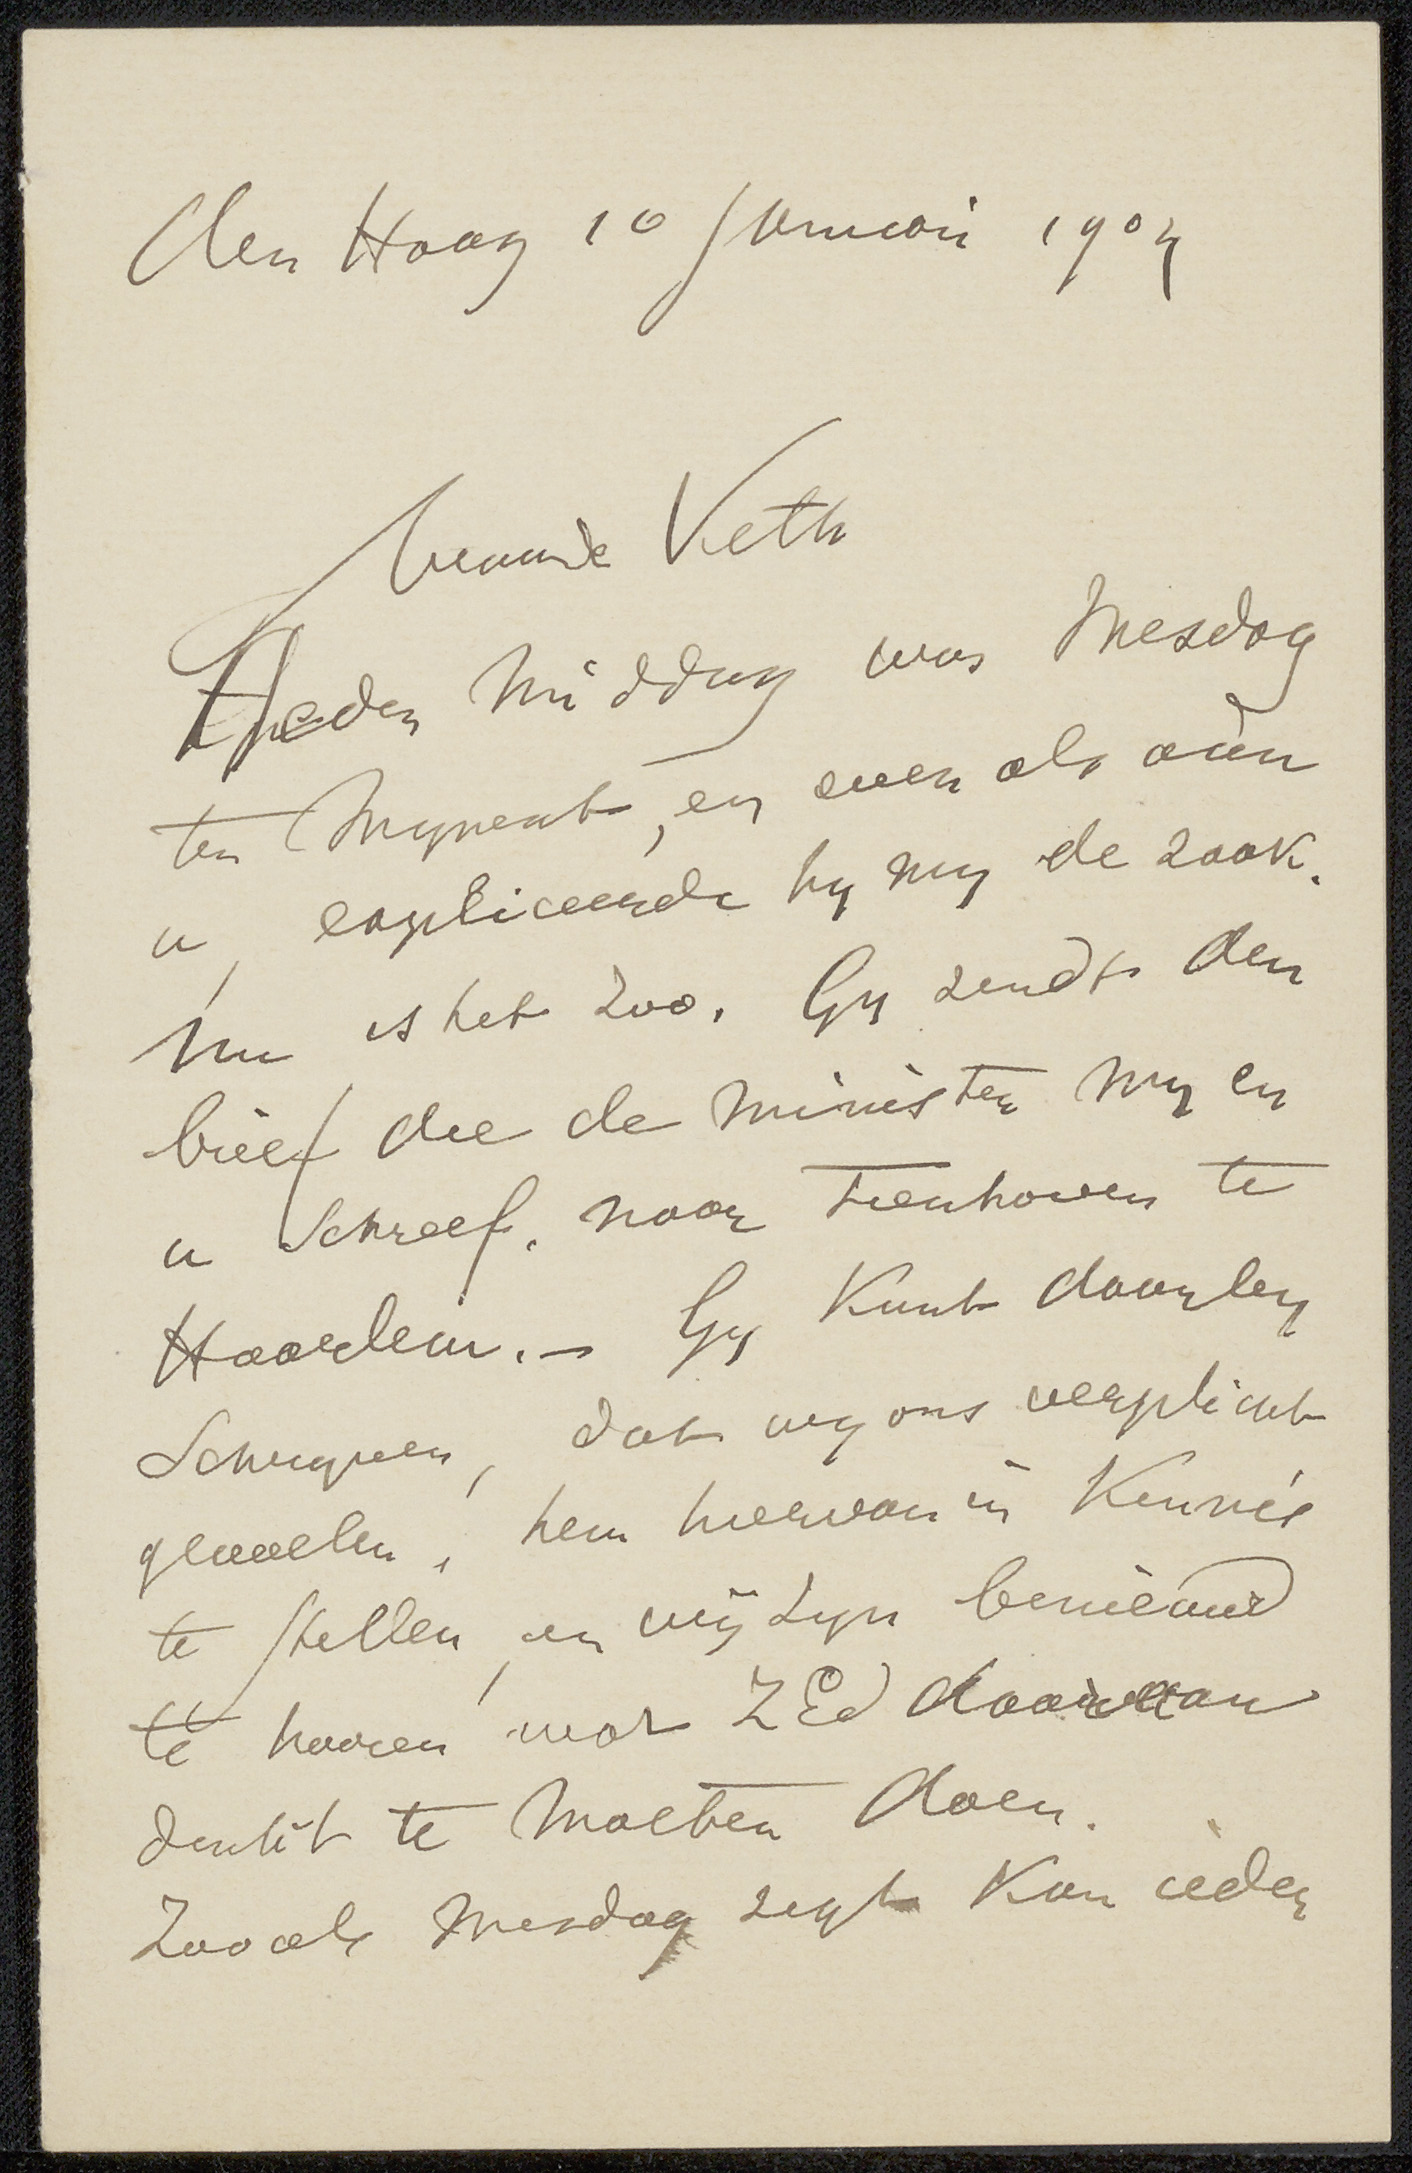 den Haag 10 Januari 1904
Waarde Veth
Heden middag was Mesdag
ten mynent, en even als aan
u, expliceerde hy my de zaak.
Nu is het zoo. Gy zendt den
brief die de minister my en
u schreef, naar Tienhoven te
Haarlem. – Gy kunt daarby
schryven, dat wy ons verplicht
gevoelen, hem hiervan in kennis
te stellen, en wij zyn benieuwd
te hooren wat ZEd daarvan
denkt te moeten doen.
Zooals Mesdag zegt kan ieder